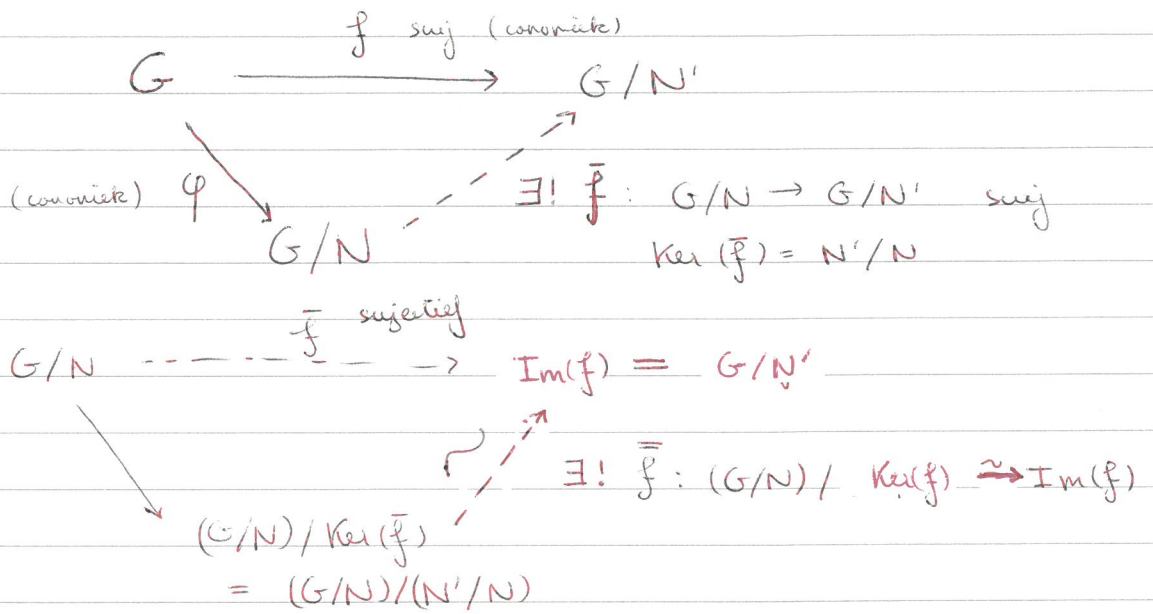 f surj (canoniek)
G → G/N'
(canoniek) φ
∃! f̄ : G/N → G/N' surj
G/N
Ker (f̄) = N'/N
f̄ surjectief
G/N → Im(f) = G/N'
∃! f̿ : (G/N) / Ker(f) ⥲ Im(f)
(G/N)/Ker(f̄)
= (G/N)/(N'/N)